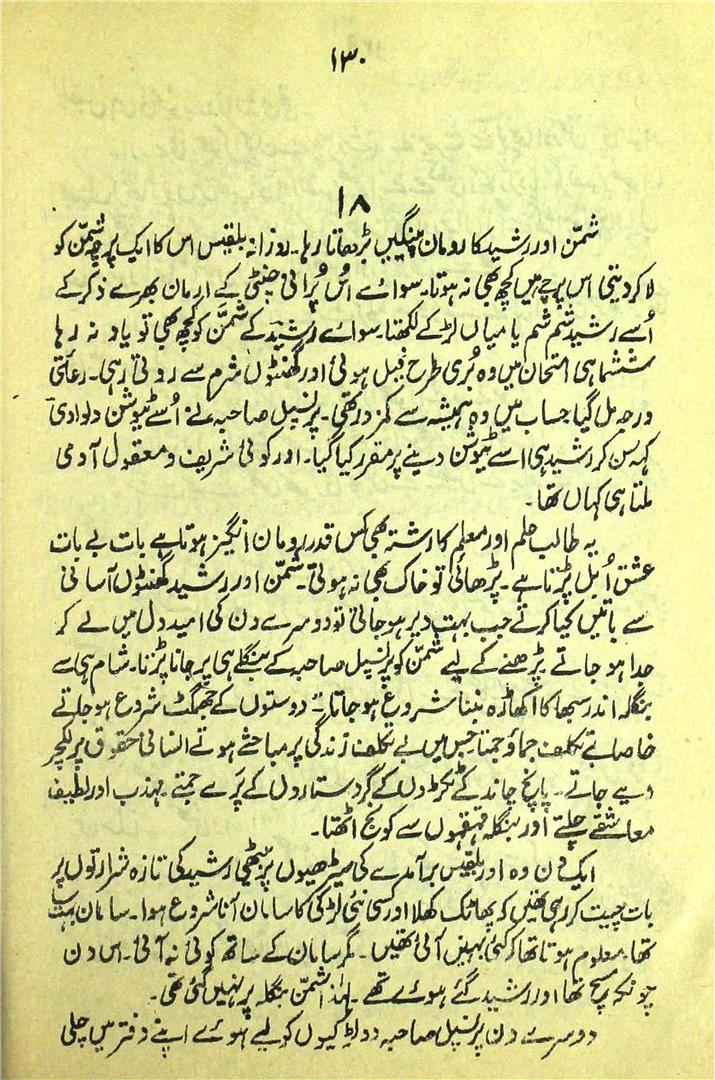 ۱۳۰
۱۸
شمّن اور رشید کا رومان پینگیں بڑھاتا رہا۔ روزانہ بلقیس اس کا ایک پرچہ شمّن کو
لا کر دیتی اس پرچے میں کچھ بھی نہ ہوتا۔ سوائے اُس پُرانی چنٹی کے ارمان بھرے ذکر کے
اُسے رشید شم شم یا میاں لڑکے لکھتا۔ سوائے رشید کے شمّن کو کچھ بھی تو یاد نہ رہا
ششماہی امتحان میں وہ بُری طرح فیل ہوئی اور گھنٹوں شرم سے روتی رہی۔ رعائتی
درجہ مل گیا حساب میں وہ ہمیشہ سے کمزور تھی۔ پرنسپل صاحبہ نے اُسے ٹیوشن دلوا دی
کہہ سن کر رشید ہی اسے ٹیوشن دینے پر مقرر کیا گیا۔ اور کوئی شریف و معقول آدمی
ملتا ہی کہاں تھا۔
یہ طالب علم اور معلم کا رشتہ بھی کس قدر رومان انگیز ہوتا ہے بات بے بات
عشق اُبل پڑتا ہے۔ پڑھائی تو خاک بھی نہ ہوتی۔ شمّن اور رشید گھنٹوں آسانی
سے باتیں کیا کرتے جب بہت دیر ہو جاتی تو دوسرے دن کی امید دل میں لے کر
جدا ہو جاتے پڑھنے کے لیے شمّن کو پرنسپل صاحبہ کے بنگلے ہی پر جانا پڑتا۔ شام ہی سے
بنگلہ اندر سبھا کا اکھاڑہ بننا شروع ہو جاتا۔ دوستوں کے جھمگٹ شروع ہو جاتے
خاصا بے تکلف جماؤ جمتا جس میں بے تکلف زندگی پر مباحثے ہوتے انسانی حقوق پر لکچر
دیے جاتے۔ پانچ چاند کے ٹکڑوں کے گرد ستاروں کے پَرے جمتے۔ مہذب اور لطیف
معاشقے چلتے اور بنگلہ قہقہوں سے گونج اٹھتا۔
ایک دن وہ اور بلقیس برآمدے کی سیڑھیوں پر بیٹھی رشید کی تازہ شرارتوں پر
بات چیت کر رہی تھیں کہ پھاٹک کھلا اور کسی نئی لڑکی کا سامان آنا شروع ہوا۔ سامان بہت سا
تھا۔ معلوم ہوتا تھا کہ کئی بہنیں آئی تھیں۔ مگر سامان کے ساتھ کوئی نہ آئی۔ اس دن
چونکہ میچ تھا اور رشید گئے ہوئے تھے۔ لہٰذا شمّن بنگلہ پر نہیں گئی تھی۔
دوسرے دن پرنسپل صاحبہ دو لڑکیوں کو لیے ہوئے اپنے دفتر میں چلی